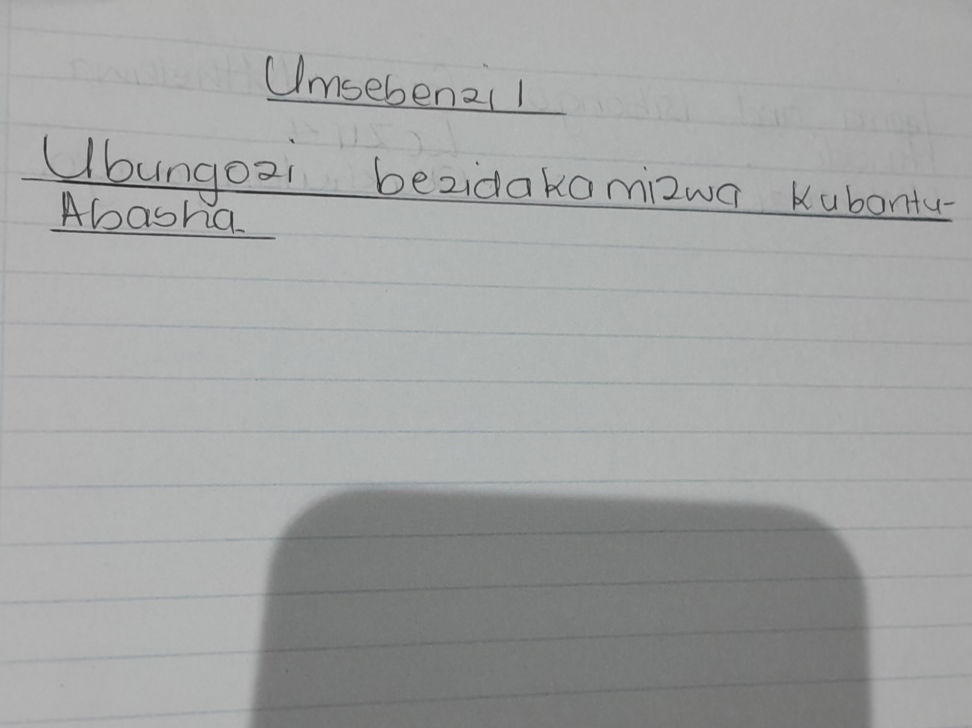 Umsebenzi 1
Ubungozi bezidakamizwa kubantu-
Abasha.